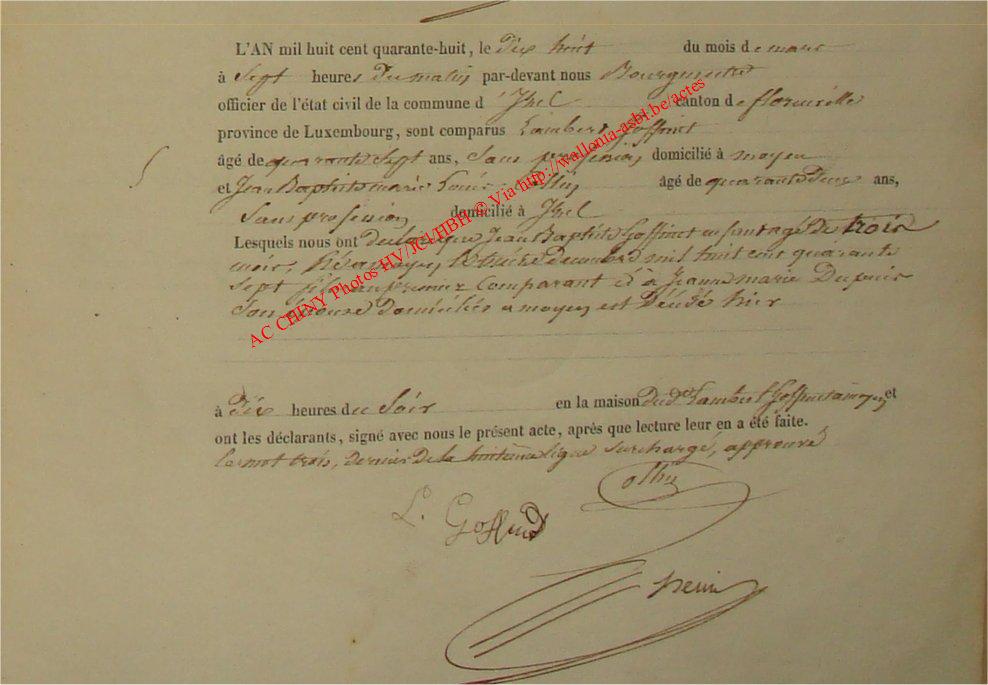 L'AN mil huit cent quarante-huit, le dix huit du mois de mars
à Sept heures du matin par-devant nous Bourgmestre
officier de l'état civil de la commune d'Izel canton de florenville
province de Luxembourg, sont comparus Lambert Goffinet
âgé de quarante Sept ans, Sans profession, domicilié à moyen
et Jean Baptiste marie Louis âgé de quarante deux ans,
Sans profession, domicilié à Izel
Lesquels nous ont declaré que Jean Baptiste Goffinet enfant agé de trois
mois, né a moyen, le decembre mil huit cent quarante
Sept fils du premier Comparant et à Jeanne marie Dupuis
Son épouse domiciliés a moyen est décédé hier
à dix heures du Soir en la maison dud Lambert Goffinet a moyen et
ont les déclarants, signé avec nous le présent acte, après que lecture leur en a été faite.
le mot trois, dernier de la huitieme ligne surchargé, approuvé
L. Goffinet
AC CHINY Photos HV/JCL/HBH © Via http://wallonia-asbl.be/actes